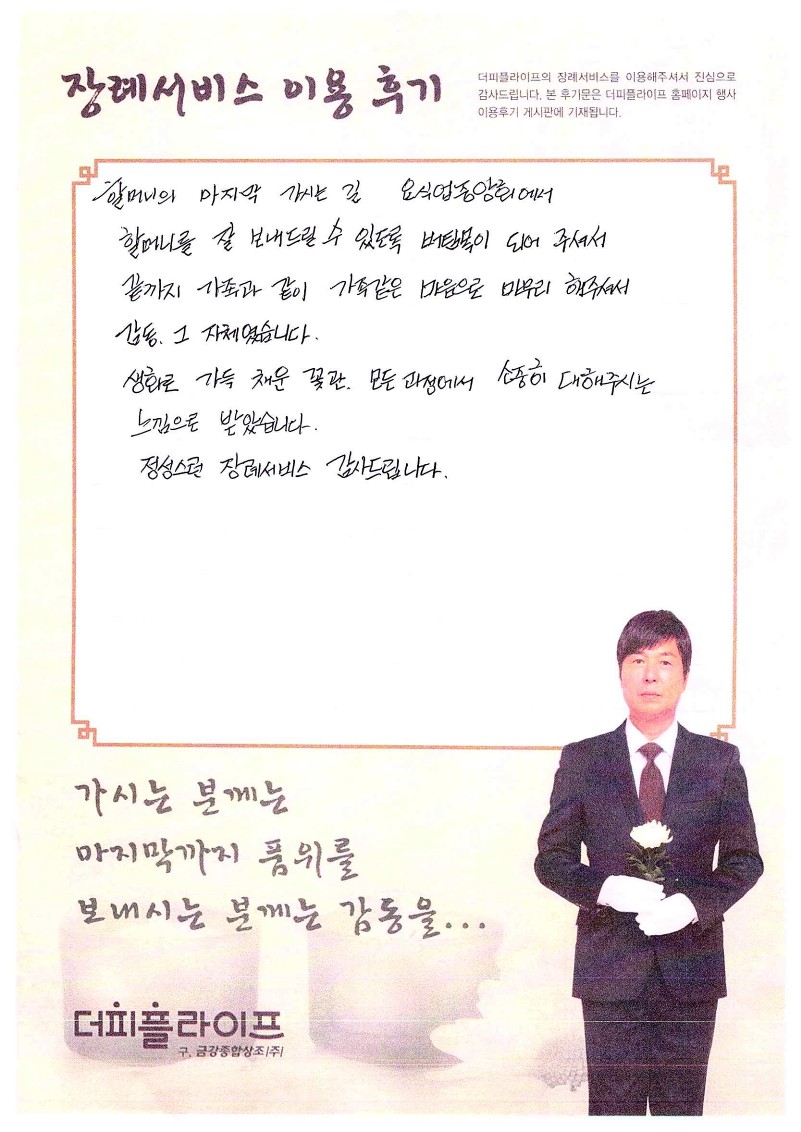 장례서비스 이용 후기
더피플라이프의 장례서비스를 이용해주셔서 진심으로
감사드립니다. 본 후기문은 더피플라이프 홈페이지 행사
이용후기 게시판에 기재됩니다.
할머니의 마지막 가시는 길 요식업중앙회에서
할머니를 잘 보내드릴 수 있도록 버팀목이 되어 주셔서
끝까지 가족과 같이 가족같은 마음으로 마무리 해주셔서
감동. 그 자체였습니다.
생화로 가득 채운 꽃관. 모든 과정에서 소중히 대해주시는
느낌으로 받았습니다.
정성스런 장례서비스 감사드립니다.
가시는 분께는
마지막까지 품위를
보내시는 분께는 감동을...
더피플라이프
구. 금강종합상조(주)